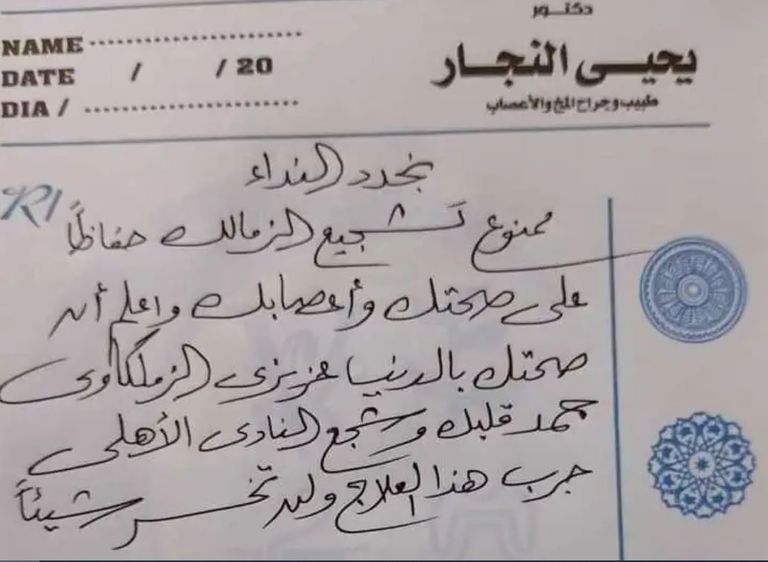 دكتور
يحيى النجار
طبيب وجراح المخ والأعصاب
NAME
DATE / / 20
DIA /
نجدد النداء
ممنوع تشجيع الزمالك حفاظاً
على صحتك وأعصابك واعلم أن
صحتك بالدنيا عزيزى الزملكاوى
جمد قلبك وشجع النادى الأهلى
جرب هذا العلاج ولن تخسر شيئاً